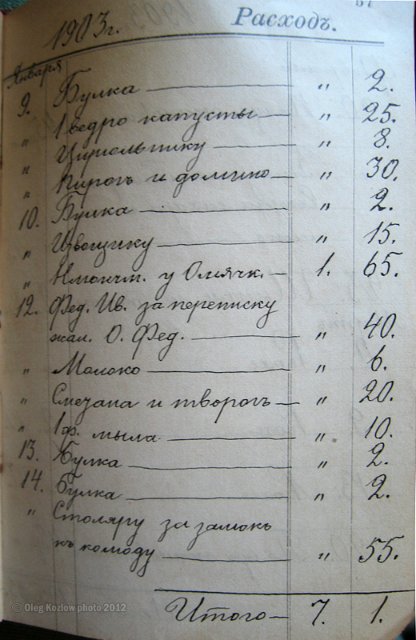 57
1903 г. Расходъ.
Января
9. Булка — " 2.
" 1 ведро капусты — " 25.
" Цирюльнику — " 8.
" Пирогъ и домино — " 30.
10. Булка — " 2.
" Извощику — " 15.
" у — 1. 65.
12. Фед. Ив. за переписку
жал. О. Фед. — " 40.
" Молоко — " 6.
" Сметана и творогъ — " 20.
" 1 ф. мыла — " 10.
13. Булка — " 2.
14. Булка — " 2.
" Столяру за замокъ
къ комоду — " 55.
Итого — 7. 1.
© Oleg Kozlow photo 2012